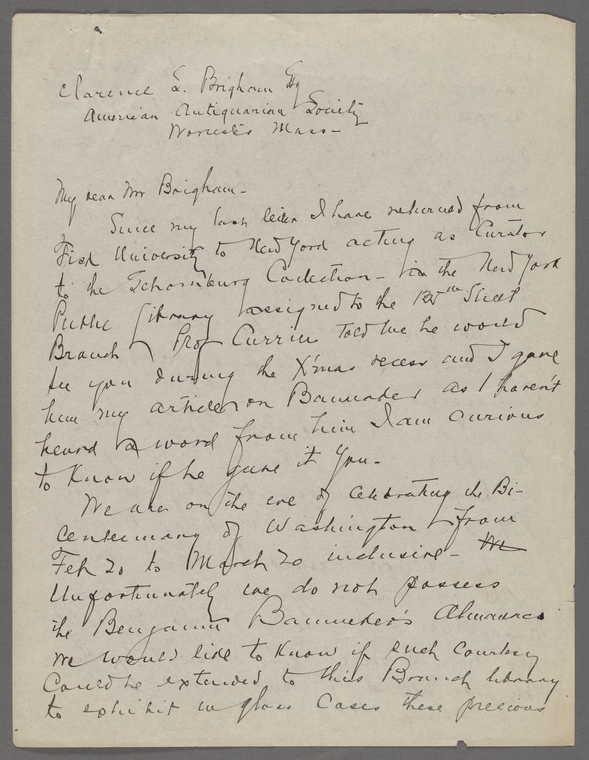 Clarence S. Brigham Esq
American Antiquarian Society
Worcester Mass-
My dear Mr Brigham-
Since my last letter I have returned from
Fisk University to New York acting as Curator
to the Schomburg Collection- in the New York
Public Library assigned to the 135th Street
Branch Prof Currier told me he would
see you during the X'mas recess and I gave
him my article on Banneker as I haven't
heard a word from him I am curious
to know if he gave it you-
We are on the eve of celebrating the Bi-
centennary of Washington from
Feb 20 to March 20 inclusive- We
Unfortunately we do not possess
the Benjamin Banneker's Almanacs
We would like to know if such courtesy
Could be extended to this Branch library
to exhibit in glass cases these precious